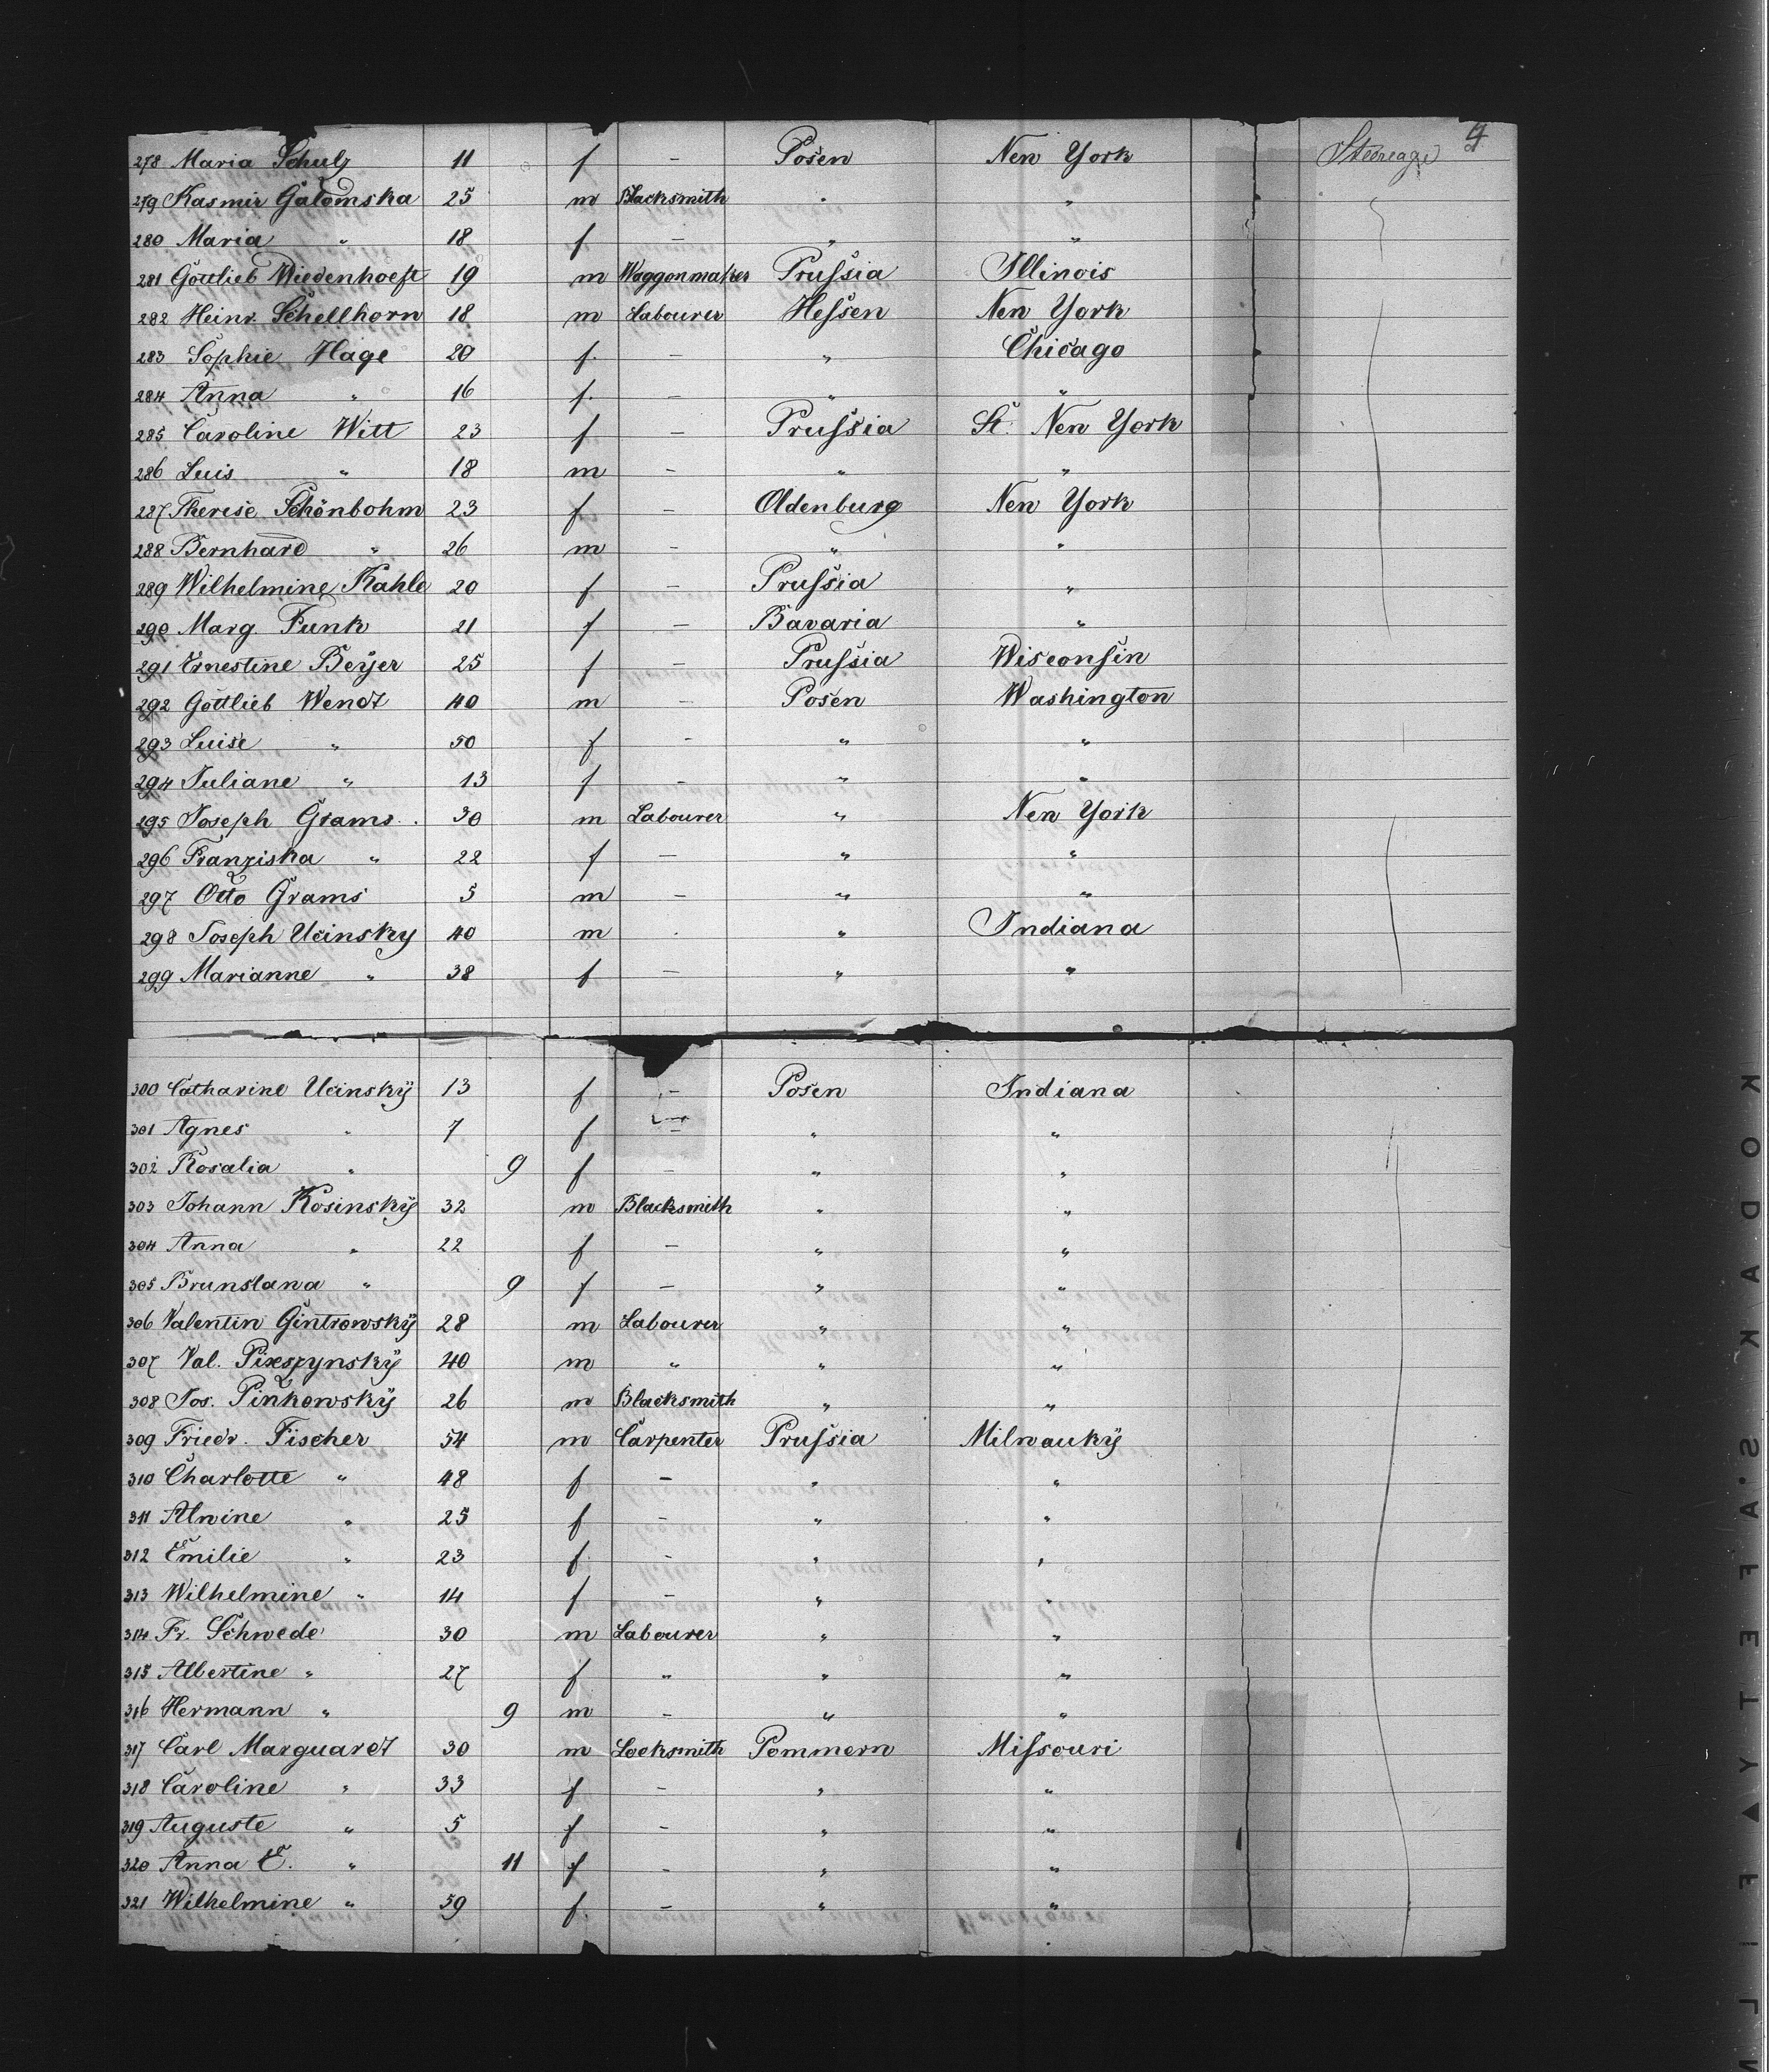 4
278 Maria Schulz 11 f – Posen New York Steerage
279 Kasmir Galomska 25 m Blacksmith " "
280 Maria " 18 f – " "
281 Gottlieb Wiedenhoeft 19 m Waggonmaker Prussia Illinois
282 Heinr. Schellhorn 18 m Labourer Hessen New York
283 Sophie Hage 20 f. – " Chicago
284 Anna " 16 f. – " "
285 Caroline Witt 23 f – Prussia St. New York
286 Luis " 18 m – " "
287 Therese Schönbohm 23 f – Oldenburg New York
288 Bernhard " 26 m – " "
289 Wilhelmine Kahle 20 f – Prussia "
290 Marg. Funk 21 f – Bavaria "
291 Ernestine Beyer 25 f – Prussia Wisconsin
292 Gottlieb Wendt 40 m – Posen Washington
293 Luise " 50 f – " "
294 Juliane " 13 f – " "
295 Joseph Grams 30 m Labourer " New York
296 Franziska " 22 f – " "
297 Otto Grams 5 m – " "
298 Joseph Ucinsky 40 m " Indiana
299 Marianne " 38 f – " "
300 Catharine Ucinskÿ 13 f – Posen Indiana
301 Agnes " 7 f – " "
302 Rosalia " 9 f – " "
303 Johann Kosinskÿ 32 m Blacksmith " "
304 Anna " 22 f – " "
305 Brunslana " 9 f – " "
306 Valentin Gintrowskÿ 28 m Labourer " "
307 Val. 40 m " " "
308 Jos. Pinkowskÿ 26 m Blacksmith " "
309 Friedr. Fischer 54 m Carpenter Prussia Milwaukÿ
310 Charlotte " 48 f – " "
311 Alwine " 25 f – " "
312 Emilie " 23 f. – " "
313 Wilhelmine " 14 f – " "
314 Fr. Schwede 30 m Labourer " "
315 Albertine " 27 f " " "
316 Hermann " 9 m – " "
317 Carl Marquardt 30 m Locksmith Pommern Missouri
318 Caroline " 33 f – " "
319 Auguste " 5 f – " "
320 Anna E. " 11 f – " "
321 Wilhelmine " 59 f. – " "
KODAK S.A.F.E.T.Y ▲ FILM